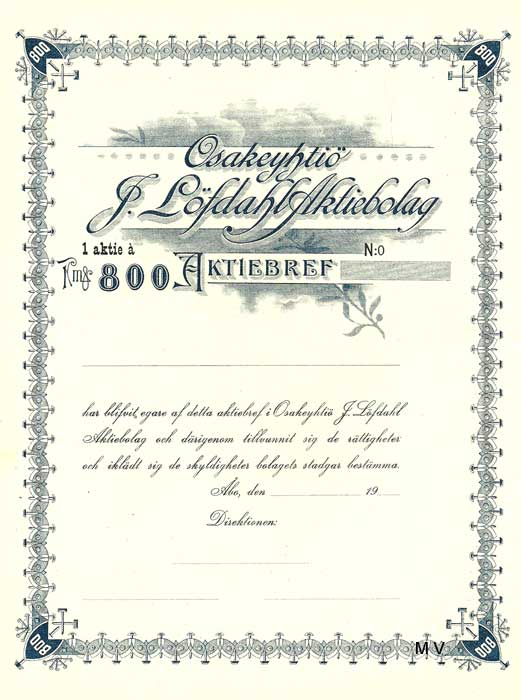 800 800
Osakeyhtiö
J. Löfdahl Aktiebolag
1 aktie à N:o
Fmk 800 AKTIEBREF
har blifvit egare af detta aktiebref i Osakeyhtiö J. Löfdahl
Aktiebolag och därigenom tillvunnit sig de rättigheter
och iklädt sig de skyldigheter bolagets stadgar bestämma.
Åbo, den 19
Direktionen:
MV
800 800